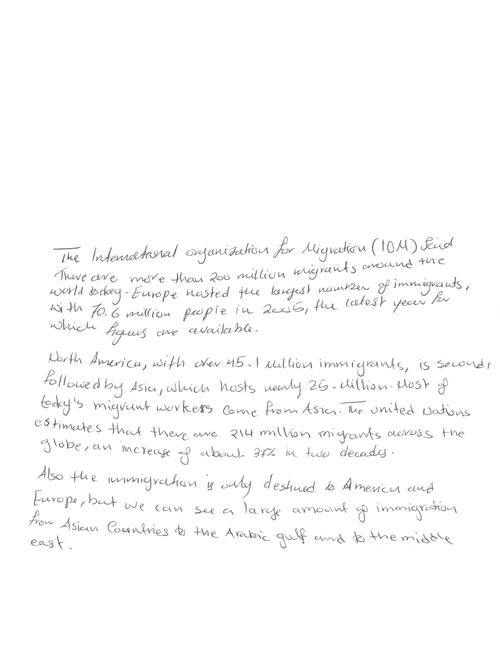 The International organization for Migration (IOM) Said
There are more than 200 million migrants around the
world today. Europe hosted the largest number of immigrants,
with 70.6 million people in 2005, the latest year for
which figures are available.
North America, with over 45.1 Million immigrants, is second,
followed by Asia, which hosts nearly 25. Million. Most of
today's migrant workers come from Asia. The united Nations
estimates that there are 214 million migrants across the
globe, an increase of about 37% in two decades.
Also the immigration is only destined to America and
Europe, but we can see a large amount of immigration
from Asian Countries to the Arabic gulf and to the middle
east.